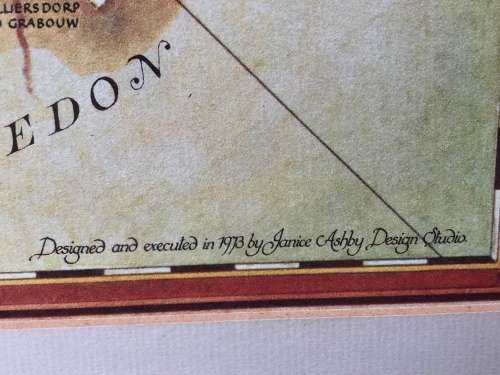 LLIERSDORP
GRABOUW
EDON
Designed and executed in 1973 by Janice Ashby Design Studio.